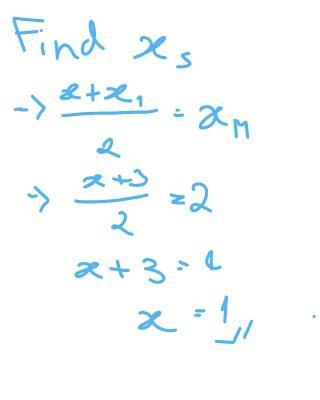 Find xₛ
-> (x+x₁)/2 = x_M
-> (x+3)/2 = 2
x + 3 = 4
x = 1